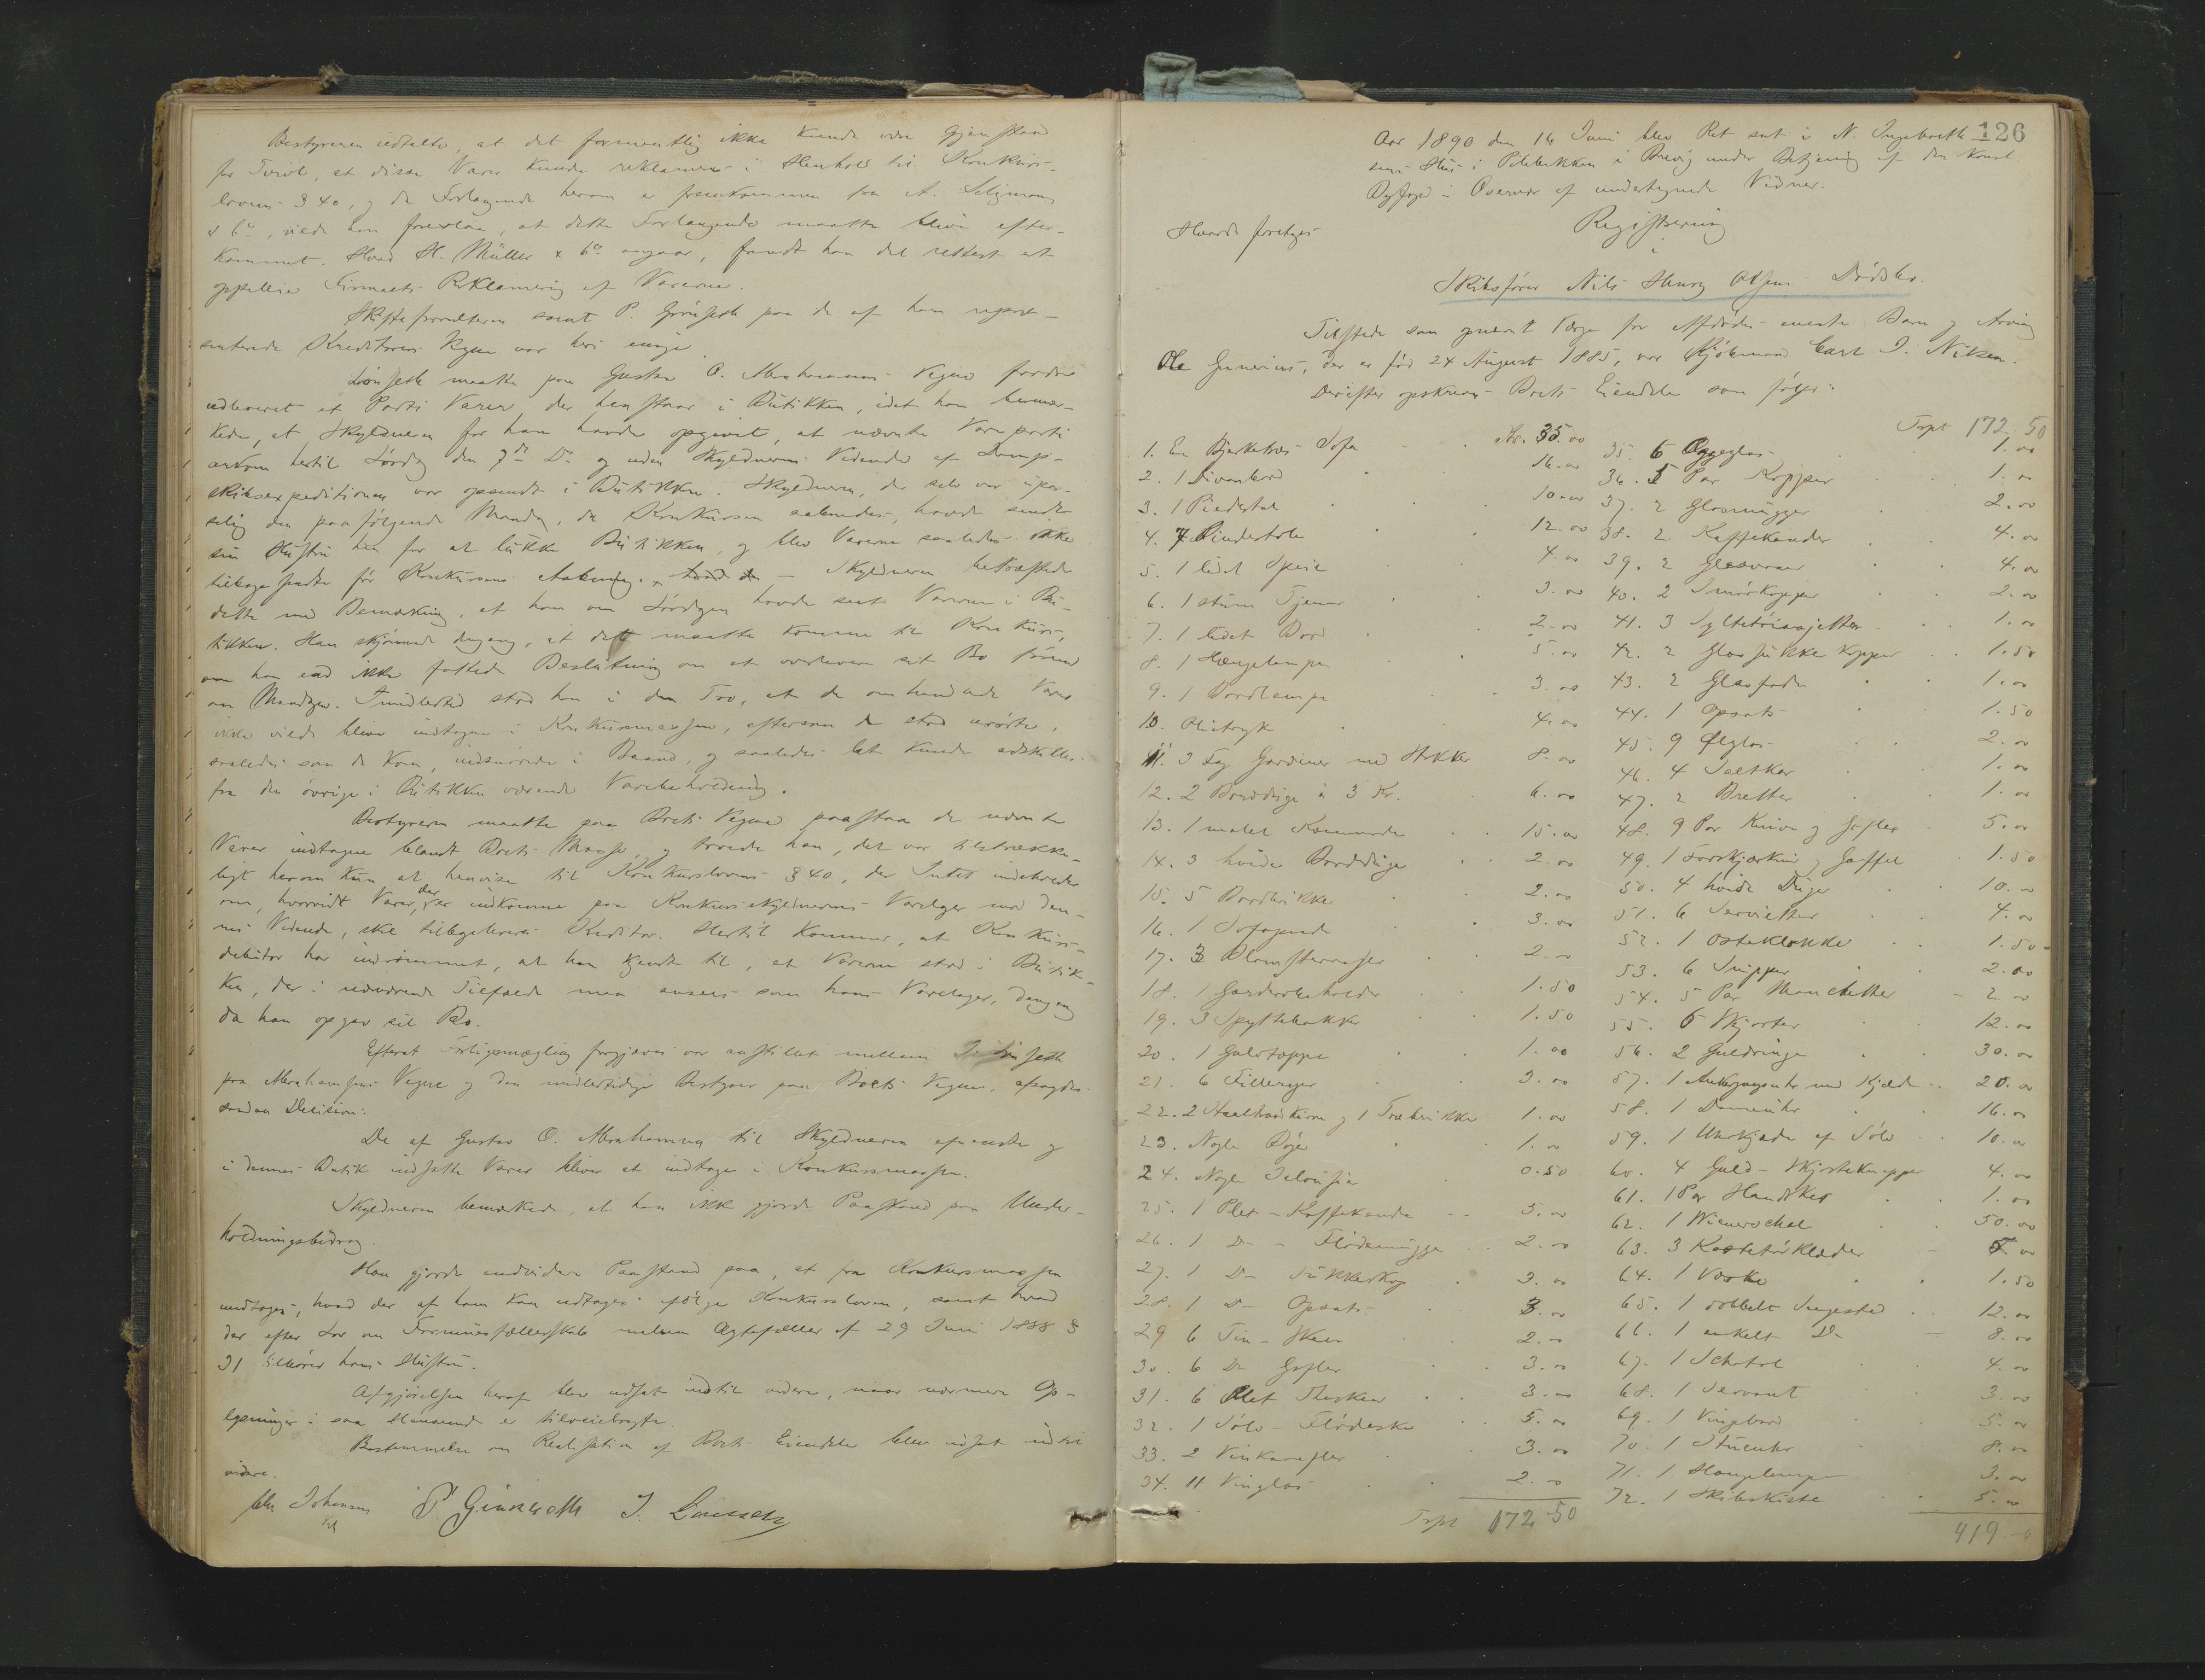 Bestyreren udtalte, at det formentlig ikke kunde være Gjenstand
for Tvivl, at disse Varer kunde reklameres i Henhold til Konkurs-
lovens § 40, og da Forlangende herom er fremkommen fra A. Seligmann
& Co, vilde han foreslaa, at dette Forlangende maatte blive efter-
kommet. Hvad H. Müller & Co angaar, fandt han det rettest at
Firmaets Reklamering af Varerne.
Skifteforvalteren samt P. Grönseth paa de af ham repræ-
senterede Kreditorers Vegne var heri enige.
maatte paa Gustav O. Abrahamsens Vegne fordre
udleveret et Parti Varer, der henstaar i Butikken, idet han bemær-
kede, at Skyldneren for ham havde opgivet, at nævnte Vareparti
ankom hertil Lørdag den 7de Ds og uden Skyldnerens Vidende af Damp-
skibsexpeditionen var opsendt i Butikken. Skyldneren, der selv var upas-
selig den paafølgende Mandag, da Konkursen aabnedes, havde sendt
sin Hustru hen for at lukke Butikken, og blev Varerne saaledes ikke
tilbagesendte før Konkursens Aabning. – Skyldneren bekræftede
dette med Bemærkning, at han om Lørdagen havde seet Varerne i Bu-
tikken. Han skjønnede dengang, at det maatte komme til Konkurs,
om han end ikke fattede Beslutning om at overlevere sit Bo førend
om Mandagen. Imidlertid stod han i den Tro, at de omhandlede Varer
ikke vilde blive indtagne i Konkursmassen, eftersom de stod urørte,
saaledes som de kom, indsnørede i Baand, og saaledes let kunde adskilles
fra den øvrige i Butikken værende Varebeholdning.
Bestyreren maatte paa Boets Vegne paastaa de nævnte
Varer indtagne blandt Boets Masse, og troede han, det var tilstrække-
ligt herom kun at henvise til Konkurslovens § 40, der Intet indeholder
om, hvorvidt Varer, der er indkomne paa Konkursskyldnerens Varelager med den-
nes Vidende, skal tilbageleveres Kreditor. Hertil kommer, at Konkurs-
debitor har indrømmet, at han kjendte til, at Varerne stod i Butik-
ken, der i nærværende Tilfælde maa ansees som hans Varelager, dengang
da han opgav sit Bo.
Efterat Forligsmægling forgjæves var anstillet mellem
paa Abrahamsens Vegne og den midlertidige Bestyrer paa Boets Vegne, afsagdes
saadan Decision:
De af Gustav O. Abrahamsen til Skyldneren afsendte og
i dennes Butik indsatte Varer bliver at indtage i Konkursmassen.
Skyldneren bemærkede, at han ikke gjorde Paastand paa Under-
holdningsbidrag.
Han gjorde endvidere Paastand paa, at fra Konkursmassen
undtages, hvad der af ham kan udtages ifølge Konkursloven, samt hvad
der efter Lov om Formuesfællesskab mellem Ægtefæller af 29 Juni 1888 §
31 tilhører hans Hustru.
Afgjørelsen heraf blev udsat indtil videre, naar nærmere Op-
lysninger i saa Henseende er tilveiebragte.
Bestemmelse om Realisation af Boets Eiendele blev udsat indtil
videre.
Johansen P. Grönseth J.
126
Aar 1890 den 16 Juni blev Ret sat i N. Ingebreth-
sens Hus i Pilebakken i Brevig under Betjening af den konst.
Byfoged i Overvær af undertegnede Vidner.
Hvorda foretoges
Registrering
i
Skibsfører Nils Henry Olsens Dødsbo.
Tilstede som opnævnt Værge for Afdødes eneste Barn og Arving
Ole Gunerius, der er født 24 August 1885, var Kjøbmand Carl J. Nilsen.
Derefter opskreves Boets Eiendele som følger:
1. En Bjerketræs Sofa Kr. 35.00
2. 1 Divanbord 16.00
3. 1 Piedestal 10.00
4. 7 Pindestole 12.00
5. 1 lidet Speil 4.00
6. 1 stum Tjener 3.00
7. 1 lidet Bord 2.00
8. 1 Hængelampe 5.00
9. 1 Bordlampe 3.00
10. Olietryk 4.00
11. 3 Fag Gardiner med Stokker 8.00
12. 2 Bordduge à 3 Kr. 6.00
13. 1 malet Kommode 15.00
14. 3 hvide Bordduge 2.00
15. 5 Bordbrikker 2.00
16. 1 Sofapude 3.00
17. 3 Blomstervaser 2.00
18. 1 Garderobeholder 1.50
19. 3 Spyttebakker 1.50
20. 1 Gulvtæppe 1.00
21. 6 Filleryer 3.00
22. 2 og 1 Træbrikke 1.00
23. Nogle Bøger 1.00
24. Nogle Jalousier 0.50
25. 1 Plet-Kaffekande 5.00
26. 1 Do – Flødemugge 2.00
27. 1 Do Sukkerkop 3.00
28. 1 Do Opsats 3.00
29 6 Tin-Skeer 2.00
30. 6 Do Gafler 3.00
31. 6 Plet Theskeer 3.00
32. 1 Sølv-Flødeske 5.00
33. 2 Vinkarafler 3.00
34. 11 Vinglas 2.00
Trpt 172.50
Trpt 172.50
35. 6 Æggeglas 1.00
36. 5 Par Kopper 1.00
37. 2 Glasmugger 2.00
38. 2 Kaffekander 4.00
39. 2 Glasvaser 4.00
40. 2 Smørkopper 2.00
41. 3 Syltetøiasjetter 1.00
42. 2 Glassukkerkopper 1.50
43. 2 Glasfade 1.00
44. 1 Opsats 1.50
45. 9 Ølglas 2.00
46. 4 Saltkar 1.00
47. 2 Bretter 1.00
48. 9 Par Knive og Gafler 5.00
49. 1 Forskjærkniv og Gaffel 1.50
50. 4 hvide Duger 10.00
51. 6 Servietter 4.00
52. 1 Osteklokke 1.50
53. 6 Snipper 2.00
54. 5 Par Manchetter 2.00
55. 6 Skjorter 12.00
56. 2 Guldringe 30.00
57. 1 Ankergangsuhr med Kjæde 20.00
58. 1 Dameuhr 16.00
59. 1 Uhrkjæde af Sølv 10.00
60. 4 Guld-Skjorteknapper 4.00
61. 1 Par Handsker 1.00
62. 1 Wienerschal 50.00
63. 3 Kastetørklæder
64. 1 Væske 1.50
65. 1 dobbelt Sengested 12.00
66. 1 enkelt Do 8.00
67. 1 Schatol 4.00
68. 1 Servant 3.00
69. 1 Vingebord 5.00
70. 1 Stueuhr 8.00
71. 1 Hængelampe 3.00
72. 1 Skibskiste 5.00
419.